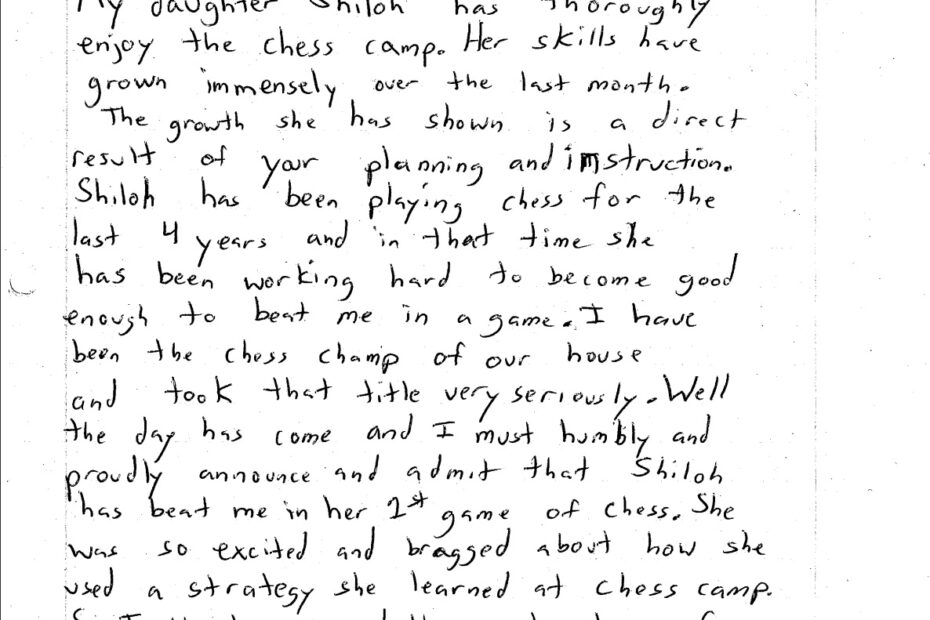 My daughter Shiloh has thoroughly
enjoy the chess camp. Her skills have
grown immensely over the last month.
The growth she has shown is a direct
result of your planning and instruction.
Shiloh has been playing chess for the
last 4 years and in that time she
has been working hard to become good
enough to beat me in a game. I have
been the chess champ of our house
and took that title very seriously. Well
the day has come and I must humbly and
proudly announce and admit that Shiloh
has beat me in her 1st game of chess. She
was so excited and bragged about how she
used a strategy she learned at chess camp.